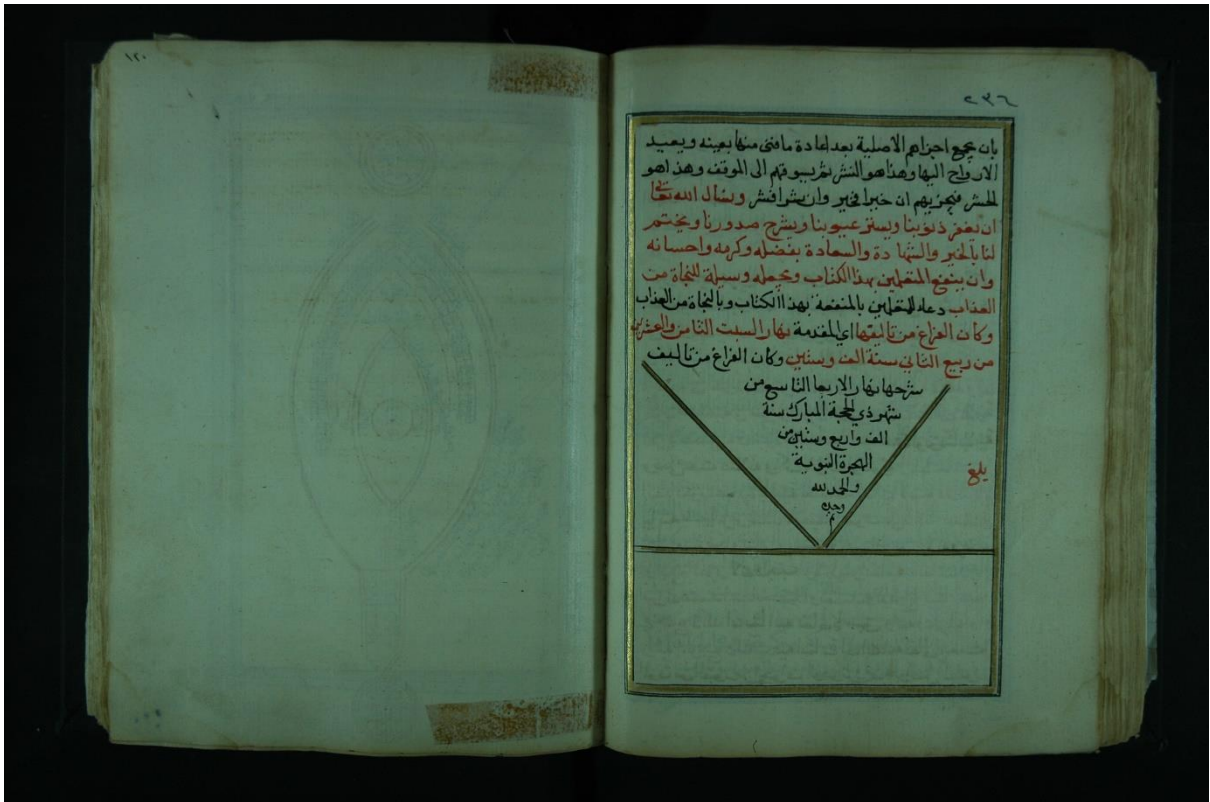 ٢٣٦
بان يجمع اجزاهم الاصلية بعد اعادة ما فنى منها بعينه ويعيد
الارواح اليها وهذا هو النشر ثم يسوقهم الى الموقف وهذا هو
الحشر فيجزيهم ان خيرا فخير وان شرا فشر ونسال الله تعالى
ان يغفر ذنوبنا ويستر عيوبنا ويشرح صدورنا ويختم
لنا بالخير والشهادة والسعادة بفضله وكرمه واحسانه
وان ينفع المتعلمين بهذا الكتاب ويجعله وسيلة للنجاة من
العذاب دعاء للمتعلمين بالمنفعة بهذا الكتاب وبالنجاة من العذاب
وكان الفراغ من تاليفها اي المقدمة نهار السبت الثامن والعشرين
من ربيع الثاني سنة الف وستين وكان الفراغ من تاليف
شرحها نهار الاربعا التاسع من
شهر ذي الحجة المبارك سنة
الف واربع وستين من
الهجرة النبوية
والحمد لله
وحده
م
بلغ
١٢٠